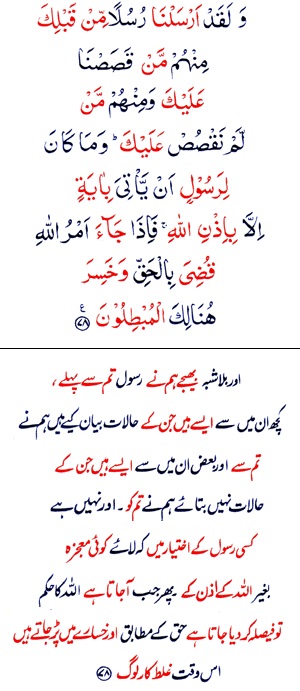 وَ لَقَدْ اَرْسَلْنَا رُسُلًا مِّنْ قَبْلِكَ
مِنْهُمْ مَّنْ قَصَصْنَا
عَلَيْكَ وَمِنْهُمْ مَّنْ
لَّمْ نَقْصُصْ عَلَيْكَ ؕ وَمَا كَانَ
لِرَسُوْلٍ اَنْ يَّاْتِىَ بِاٰيَةٍ
اِلَّا بِاِذْنِ اللّٰهِ ۚ فَاِذَا جَآءَ اَمْرُ اللّٰهِ
قُضِىَ بِالْحَقِّ وَخَسِرَ
هُنَالِكَ الْمُبْطِلُوْنَ ﴿۷۸﴾ ع
اور بلاشبہ بھیجے ہم نے رسول تم سے پہلے ،
کچھ ان میں سے ایسے ہیں جن کے حالات بیان کیے ہیں ہم نے
تم سے اور بعض ان میں سے ایسے ہیں جن کے
حالات نہیں بتائے ہم نے تم کو ۔ اور نہیں ہے
کسی رسول کے اختیار میں کہ لائے کوئی معجزہ
بغیر اللہ کے اذن کے پھر جب آجاتا ہے اللہ کا حکم
تو فیصلہ کر دیا جاتا ہے حق کے مطابق اور خسارے میں پڑ جاتے ہیں
اس وقت غلط کار لوگ ﴿۷۸﴾